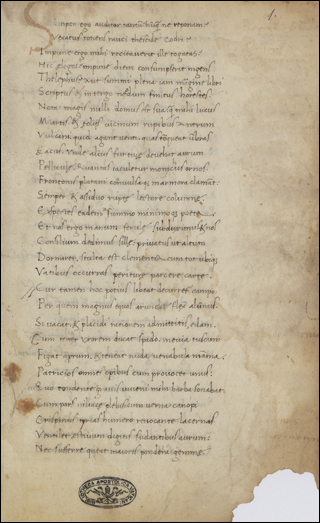 1.
Semper ego auditor tantum nunq; ne reponam
Vexatus totiens rauci theseide codri
Impune ergo mihi recitaverit ille togatas
Hic elegos impune diem consumpserit ingens
Thelephus aut summi plena iam margine libri
Scriptus & in tergo nedum finitus horestes
Nota magis nulli domus est sua quam mihi lucus
Martis & eoliis vicinum rupibus antrum
Vulcani quid agant venti quas torqueat umbras
Eacus unde alius furtive devehat aurum
Pellicule quantas iaculetur monicus ornos
Frontonis platani convulsaq marmora clamant
Semper & assiduo rupte lectore columne
Expectes eadem summo minimoq poeta
Et nos ergo manum ferule subduximus & nos
Consilium dedimus sille privatus ut altum
Dormiret stulta est clementia cum tot ubiq
Vatibus occurras periture parcere carte
Cur tamen hoc potius libeat decurrere campo
Per quem magnus equos arunce flexit alumnus
Si vacat & placidi rationem admittitis edam
Cum tener uxorem ducat spado mevia tuscum
Figat aprum & teneat nuda venabula mamma
Patricios omnes opibus cum provocet unus
Quo tondente gravis iuveni mihi barba sonabat
Cum pars niliace plebis cum verna canopi
Crispinus tyrias humero revocante lacernas
Ventilet estivum digitis sudantibus aurum
Nec sufferre queat maioris pondera gemme